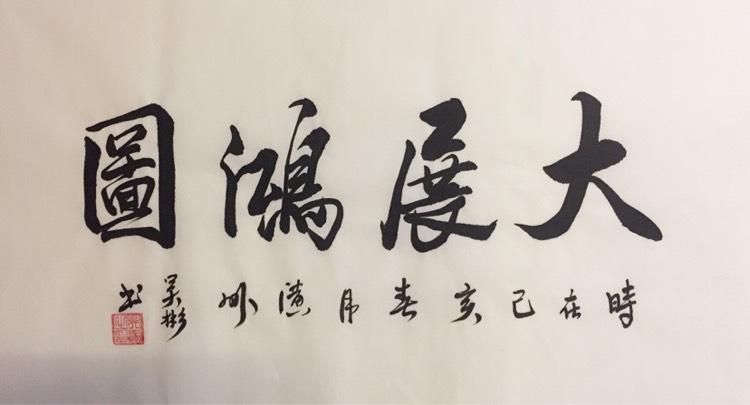 大展鴻圖
時在己亥春月濱州
吴彬
书